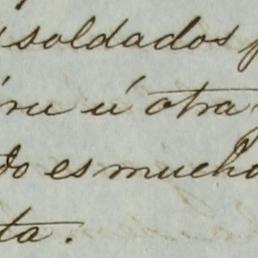 soldados
ú otra
do es mucho
ta.